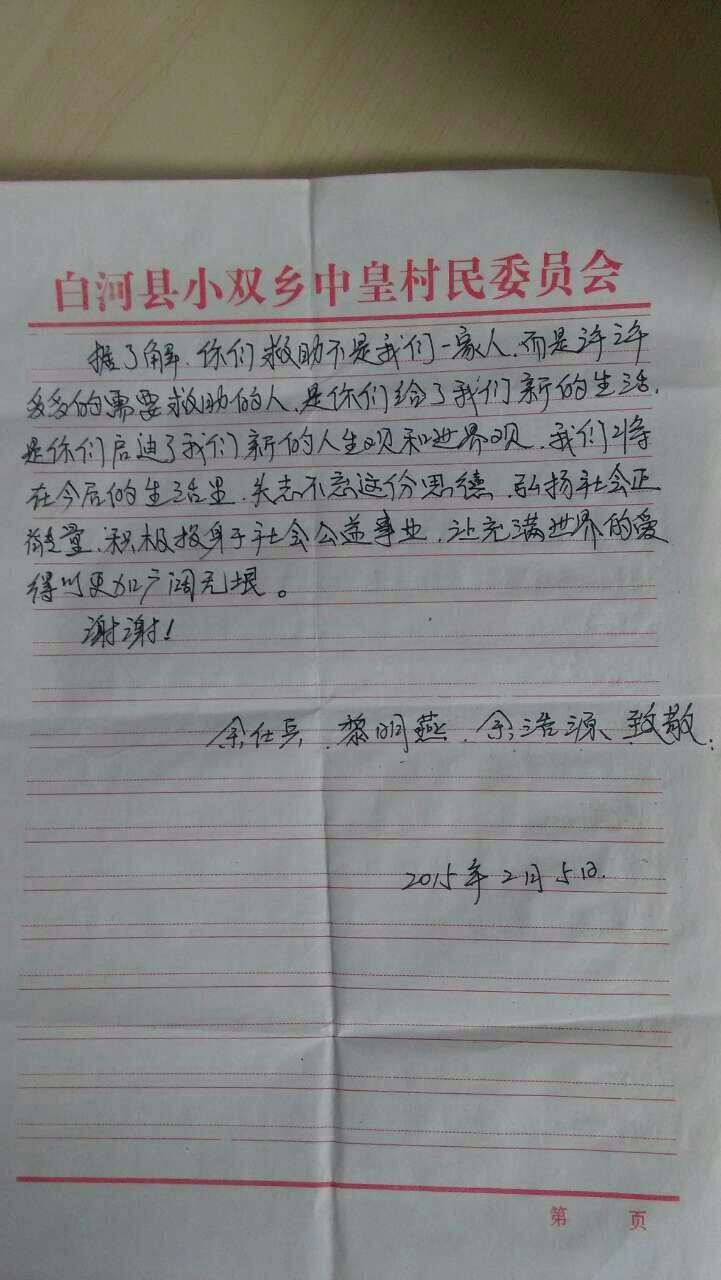 白河县小双乡中皇村民委员会
据了解，你们救助不是我们一家人，而是许许
多多的需要救助的人，是你们给了我们新的生活，
是你们启迪了我们新的人生观和世界观，我们将
在今后的生活里，矢志不忘这份恩德，弘扬社会正
能量，积极投身于社会公益事业，让充满世界的爱
得以更加广阔无垠。
谢谢！
余仕兵、黎明燕、余浩源、致敬：
2015年2月5日.
第 页